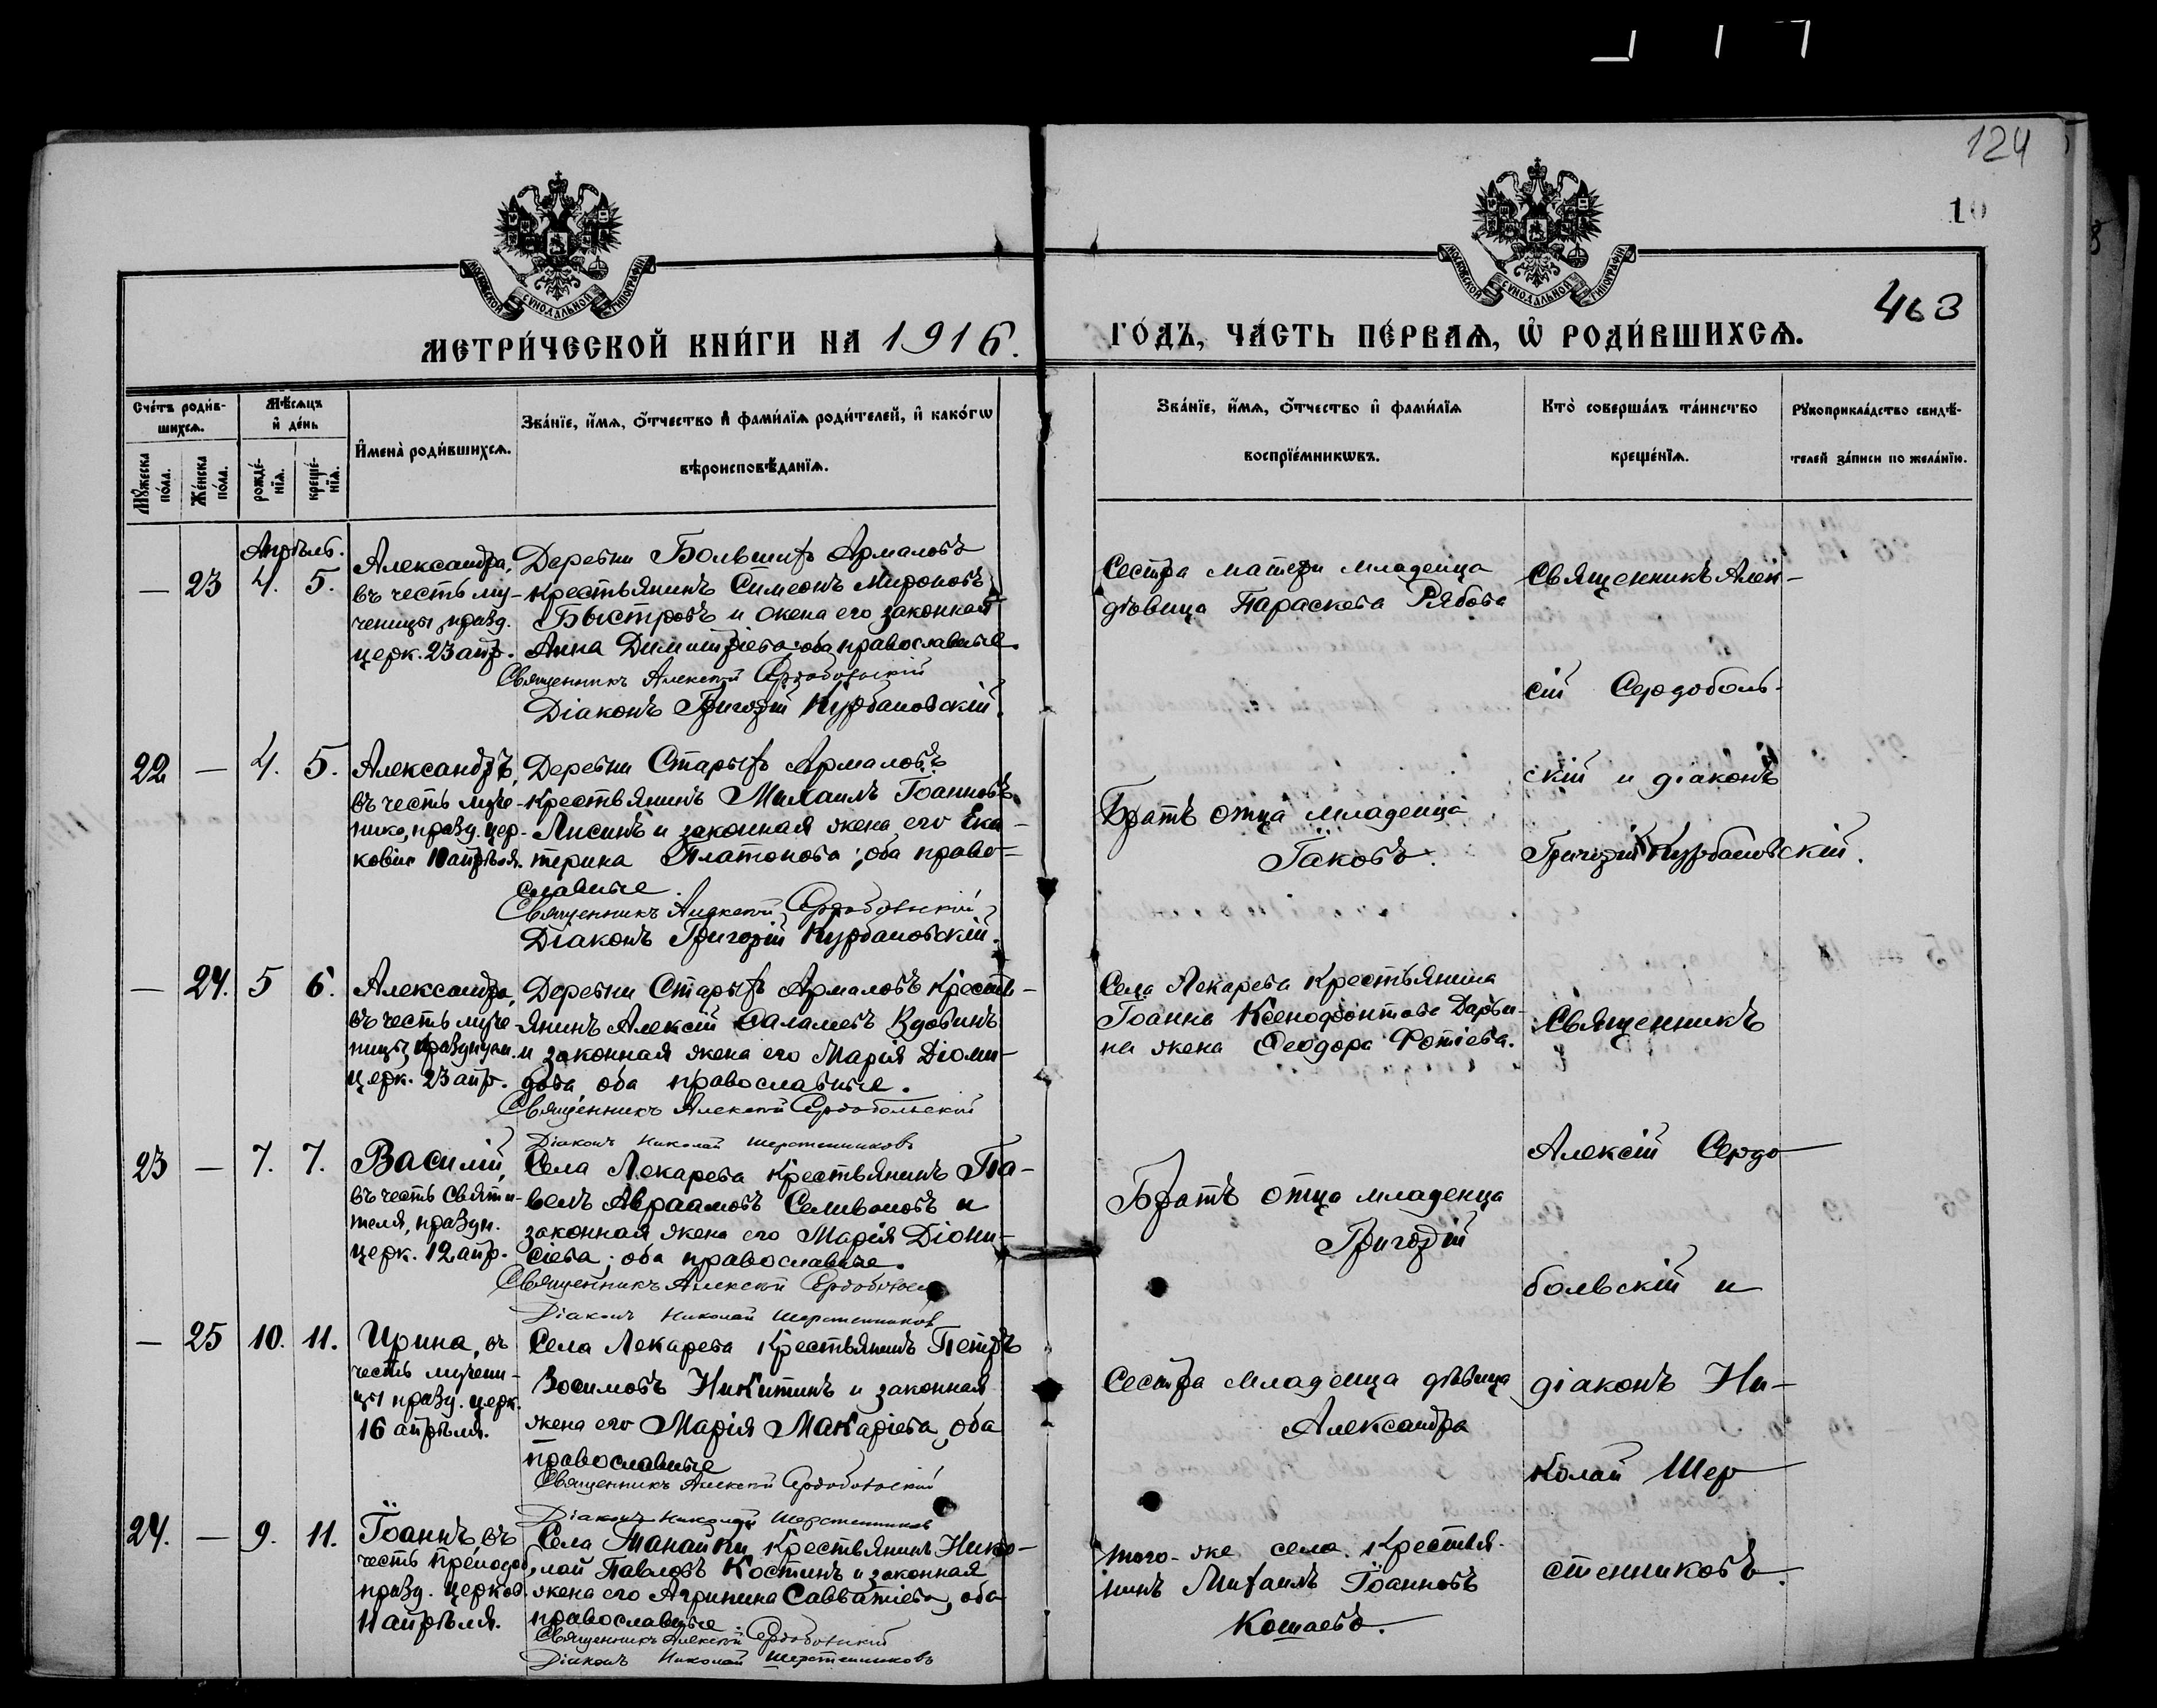 124
10
МОСКОВСКОЙ СѴНОДАЛЬНОЙ ТИПОГРАФІИ
МОСКОВСКОЙ СѴНОДАЛЬНОЙ ТИПОГРАФІИ
463
МЕТРИ́ЧЕСКОЙ КНИ́ГИ НА 1916.
ГО́ДЪ, ЧА́СТЬ ПЕ́РВАѦ, Ѡ҆ РОДИ́ВШИХСѦ.
Сче́тъ роди́в-
шихсѧ.
Мѣ́сѧцъ
и҆ де́нь
Мꙋ́жеска
по́ла.
Же́нска
по́ла.
рожде́-
нїѧ.
креще́-
нїѧ.
И҆мена̀ роди́вшихсѧ.
Зва́нїе, и҆́мѧ, ѻ҆́тчество и҆ фами́лїѧ роди́телей, и҆ како́гѡ
вѣроисповѣ́данїѧ.
Зва́нїе, и҆́мѧ, ѻ҆́тчество и҆ фами́лїѧ
воспрїе́мникѡвъ.
Кто̀ соверша́лъ та́инство
креще́нїѧ.
Рꙋкоприкла́дство свидѣ́-
телей за́писи по жела́нїю.
Апрѣль.
— 23 4. 5.
Александра,
въ честь му-
ченицы, празд.
церк. 23 апр.
Деревни Большихъ Армаловъ
крестьянинъ Симеонъ Мироновъ
Быстровъ и жена его законная
Анна Димитріева: оба православные.
Священникъ Алексій Сердобольскій
Діаконъ Григорій Курбановскій.
Сестра матери младенца
дѣвица Параскева Рябова
Священникъ Алек-
сій Сердоболь-
скій и діаконъ
Григорій Курбановскій.
22 — 4. 5.
Александръ,
въ честь муче-
ника, празд. цер-
ковію 10 апрѣля.
Деревни Старыхъ Армаловъ
крестьянинъ Михаилъ Іоанновъ
Лисинъ и законная жена его Ека-
терина Платонова; оба право-
славные.
Священникъ Алексій Сердобольскій
Діаконъ Григорій Курбановскій.
Братъ отца младенца
Іаковъ.
— 24. 5 6.
Александра,
въ честь муче-
ницы празднуем.
церк. 23 апр.
Деревни Старыхъ Армаловъ крестъ-
янинъ Алексій Вдовинъ
и законная жена его Марія Діоми-
дова оба православные.
Священникъ Алексій Сердобольскій
Діаконъ Николай Шерстенниковъ
Села Лекарева крестьянина
Іоанна Ксенофонтова Дарьи-
на жена Ѳеодора Фотіева.
Священникъ
Алексій Сердо-
больскій и
діаконъ Ни-
колай Шер-
стенниковъ.
23 — 7. 7.
Василій,
въ честь Святи-
теля, праздн.
церк. 12 апр.
Села Лекарева крестьянинъ Па-
велъ Авраамовъ Селивановъ и
законная жена его Марія Діони-
сіева; оба православные.
Священникъ Алексій Сердобольскій
Діаконъ Николай Шерстенниковъ
Братъ отца младенца
Григорій
— 25 10. 11.
Ирина, въ
честь мучени-
цы празд. церк.
16 апрѣля.
Села Лекарева крестьянинъ Петръ
Зосимовъ Никитинъ и законная
жена его Марія Макаріева, оба
православные
Священникъ Алексій Сердобольскій
Діаконъ Николай Шерстенниковъ
Сестра младенца дѣвица
Александра
24. — 9. 11.
Іоаннъ, въ
честь преподоб.
празд. церков.
11 апрѣля.
Села Танайки крестьянинъ Нико-
лай Павловъ Костинъ и законная
жена его Агрипина Савватіева, оба
православные.
Священникъ Алексій Сердобольскій
Діаконъ Николай Шерстенниковъ
того-же села крестья-
нинъ Михаилъ Іоанновъ
Кошаевъ.